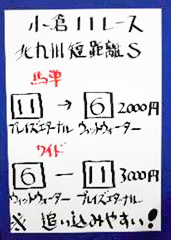 小倉11レース
北九州短距離S
馬単
11 → 6 2000円
ブレイズエターナル ウィットウォーター
ワイド
6 ー 11 3000円
ウィットウォーター ブレイズエターナル
※ 追い込みやすい!